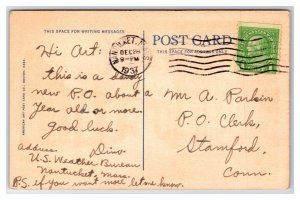 THIS SPACE FOR WRITING MESSAGES
POST CARD
THIS SPACE IS FOR ADDRESS ONLY
NANTUCKET, MASS.
DEC 28
8-PM
1937
Hi Art:
this is a
new P.O. about a
year old or more.
Good luck.
Dino
address.
U.S. Weather Bureau
Nantucket, Mass.
P.S. if you want more let me know.
Mr A. Parkin
P.O. Clerk,
Stamford.
Conn.